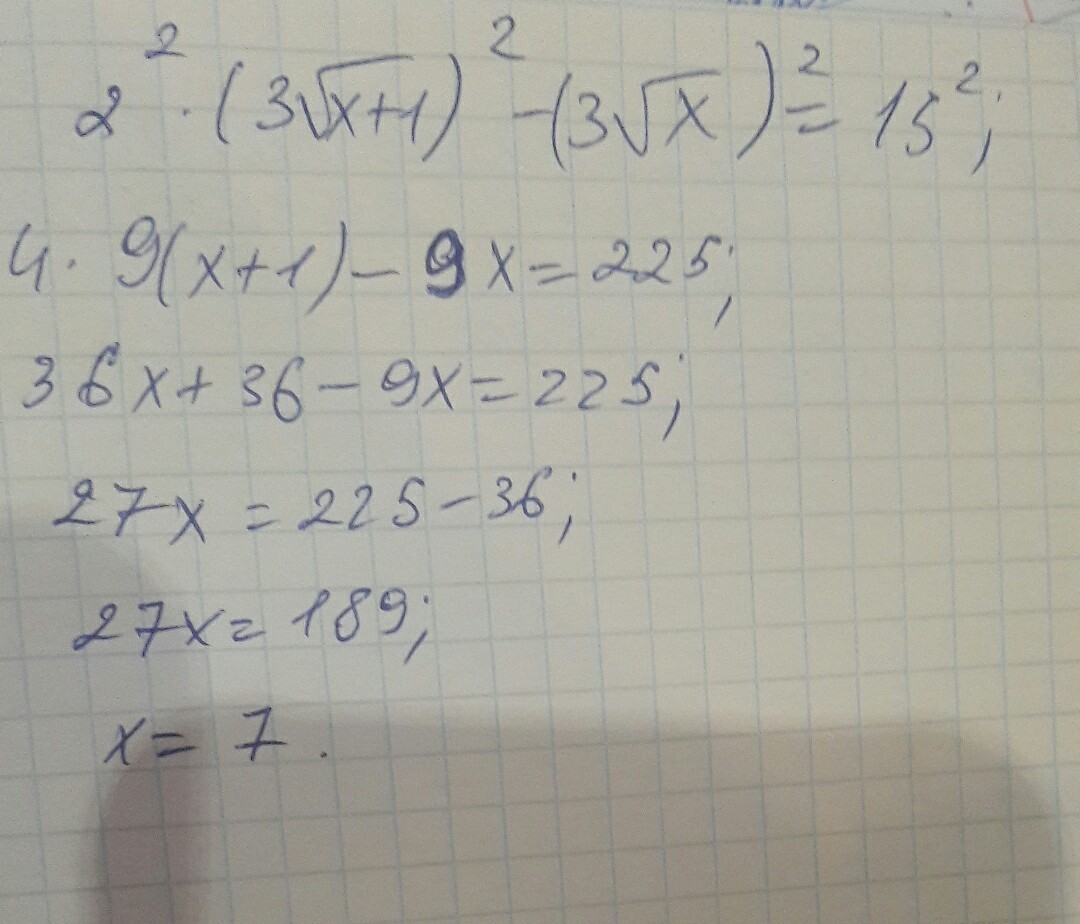 2² · (3√(x+1))² - (3√x)² = 15²;
4 · 9(x+1) - 9x = 225;
36x + 36 - 9x = 225;
27x = 225 - 36;
27x = 189;
x = 7.